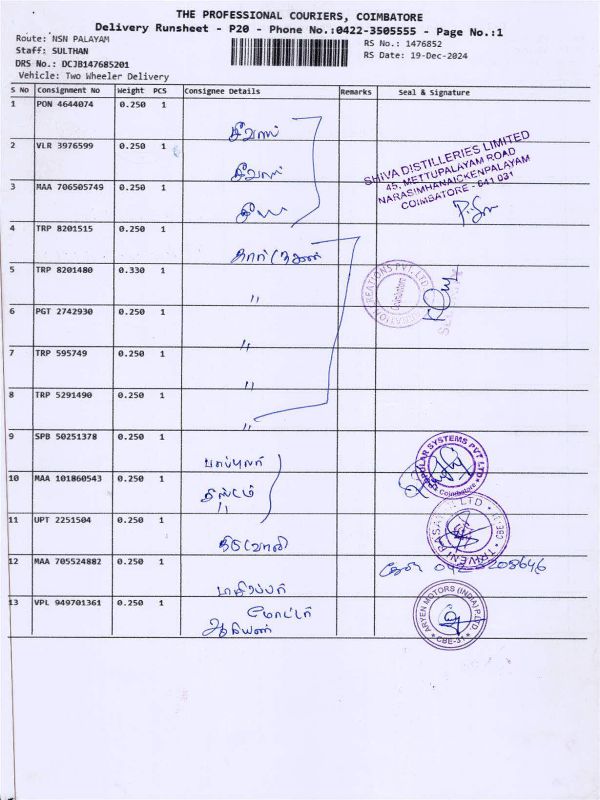 THE PROFESSIONAL COURIERS, COIMBATORE
Delivery Runsheet - P20 - Phone No.:0422-3505555 - Page No.:1
Route: NSN PALAYAM
RS No.: 1476852
Staff: SULTHAN
RS Date: 19-Dec-2024
DRS No.: DCJB147685201
Vehicle: Two Wheeler Delivery
S No Consignment No Weight PCS Consignee Details Remarks Seal & Signature
1 PON 4644074 0.250 1
சிவாஸ்
2 VLR 3976599 0.250 1
சிவாஸ்
SHIVA DISTILLERIES LIMITED
45, METTUPALAYAM ROAD
NARASIMHANAICKENPALAYAM
COIMBATORE - 641 031
3 MAA 706505749 0.250 1
4 TRP 8201515 0.250 1
5 TRP 8201480 0.330 1
"
CREATIONS PVT. LTD
Coimbatore
6 PGT 2742930 0.250 1
"
7 TRP 595749 0.250 1
"
8 TRP 5291490 0.250 1
"
9 SPB 50251378 0.250 1
பாப்புலர்
POPULAR SYSTEMS PVT LTD
Coimbatore
10 MAA 101860543 0.250 1
சிஸ்டம்
"
11 UPT 2251504 0.250 1
திருவேணி
LTD
CBE
12 MAA 705524882 0.250 1
13 VPL 949701361 0.250 1
மோட்டர்
ஆரியன்
ARYEN MOTORS (INDIA) P LTD
CBE-31